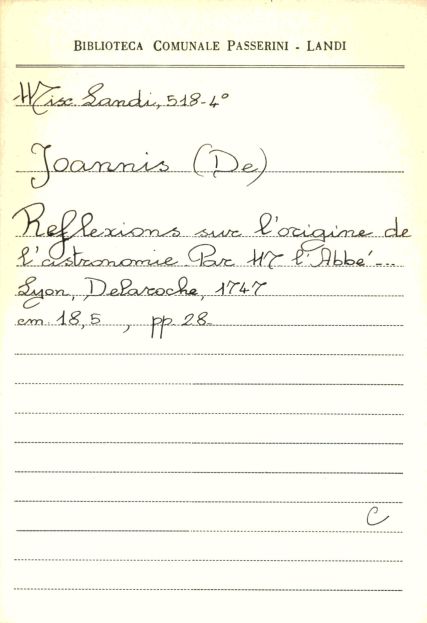 BIBLIOTECA COMUNALE PASSERINI - LANDI
Misc. Landi, 518-4°
Joannis (De)
Reflexions sur l'origine de
l'astronomie. Par M l'Abbé -..
Lyon, Delaroche, 1747
cm. 18,5 , pp. 28.
C